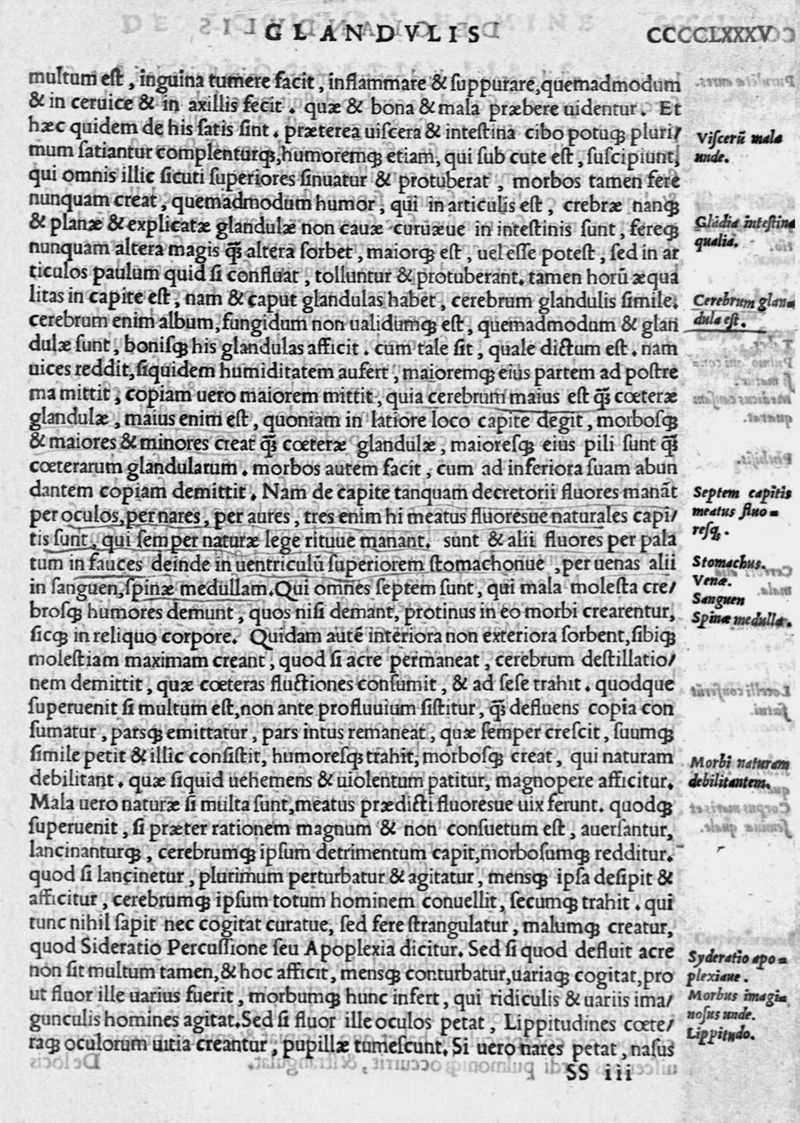 GLANDVLIS CCCCLXXXV
multum eſt, inguina tumere facit, inflammare & ſuppurare, quemadmodum
& in ceruice & in axillis fecit. quæ & bona & mala præbere uidentur. Et
hæc quidem de his ſatis ſint. præterea uiſcera & inteſtina cibo potuq́; pluri/
mum ſatiantur complenturq́;, humoremq́; etiam, qui ſub cute eſt, ſuſcipiunt,
qui omnis illic ſicuti ſuperiores ſinuatur & protuberat, morbos tamen fere
nunquam creat, quemadmodum humor, qui in articulis eſt, crebræ nanq́;
& planæ & explicatæ glandulæ non cauæ curuæue in inteſtinis ſunt, fereq́;
nunquam altera magis q̃ altera ſorbet, maiorq́; eſt, uel eſſe poteſt, ſed in ar
ticulos paulum quid ſi confluat, tolluntur & protuberant. tamen horũ æqua
litas in capite eſt, nam & caput glandulas habet, cerebrum glandulis ſimile.
cerebrum enim album, fungidum non ualidumq́; eſt, quemadmodum & glan
dulæ ſunt, boniſq́; his glandulas afficit. cum tale ſit, quale dictum eſt. nam
uices reddit, ſiquidem humiditatem aufert, maioremq́; eius partem ad poſtre
ma mittit, copiam uero maiorem mittit, quia cerebrum maius eſt q̃ cœteræ
glandulæ, maius enim eſt, quoniam in latiore loco capite degit, morboſq́;
& maiores & minores creat q̃ cœteræ glandulæ, maioreſq́; eius pili ſunt q̃
cœterarum glandularum. morbos autem facit, cum ad inferiora ſuam abun
dantem copiam demittit. Nam de capite tanquam decretorii fluores manãt
per oculos, per nares, per aures, tres enim hi meatus fluoresue naturales capi/
tis ſunt, qui ſemper naturæ lege rituue manant. ſunt & alii fluores per pala
tum in fauces deinde in uentriculũ ſuperiorem ſtomachonue, per uenas alii
in ſanguen, ſpinæ medullam. Qui omnes ſeptem ſunt, qui mala moleſta cre/
broſq́; humores demunt, quos niſi demant, protinus in eo morbi crearentur,
ſicq́; in reliquo corpore. Quidam autẽ interiora non exteriora ſorbent, ſibiq́;
moleſtiam maximam creant, quod ſi acre permaneat, cerebrum deſtillatio/
nem demittit, quæ cœteras fluctiones conſumit, & ad ſeſe trahit. quodque
ſuperuenit ſi multum eſt, non ante profluuium ſiſtitur, q̃ defluens copia con
ſumatur, parsq́; emittatur, pars intus remaneat, quæ ſemper creſcit, ſuumq́;
ſimile petit & illic conſiſtit, humoreſq́; trahit, morboſq́; creat, qui naturam
debilitant. quæ ſiquid uehemens & uiolentum patitur, magnopere afficitur.
Mala uero naturæ ſi multa ſunt, meatus prædicti fluoresue uix ferunt. quodq́;
ſuperuenit, ſi præter rationem magnum & non conſuetum eſt, auerſantur,
lancinanturq́;, cerebrumq́; ipſum detrimentum capit, morboſumq́; redditur.
quod ſi lancinetur, plurimum perturbatur & agitatur, mensq́; ipſa deſipit &
afficitur, cerebrumq́; ipſum totum hominem conuellit, ſecumq́; trahit. qui
tunc nihil ſapit nec cogitat curatue, ſed fere ſtrangulatur, malumq́; creatur,
quod Sideratio Percuſſione ſeu Apoplexia dicitur. Sed ſi quod defluit acre
non ſit multum tamen, & hoc afficit, mensq́; conturbatur, uariaq́; cogitat, pro
ut fluor ille uarius fuerit, morbumq́; hunc infert, qui ridiculis & uariis ima/
gunculis homines agitat. Sed ſi fluor ille oculos petat, Lippitudines cœte/
raq́; oculorum uitia creantur, pupillæ tumeſcunt. Si uero nares petat, naſus
SS iii
Viſcerũ mala
unde.
Glãdia inteſtina
qualia.
Cerebrum glan=
dula eſt.
Septem capitis
meatus fluo=
reſq́;.
Stomachus.
Venæ.
Sanguen
Spinæ medulla.
Morbi naturam
debilitantem.
Syderatio apo=
plexiaue.
Morbus imagi=
noſus unde.
Lippitudo.